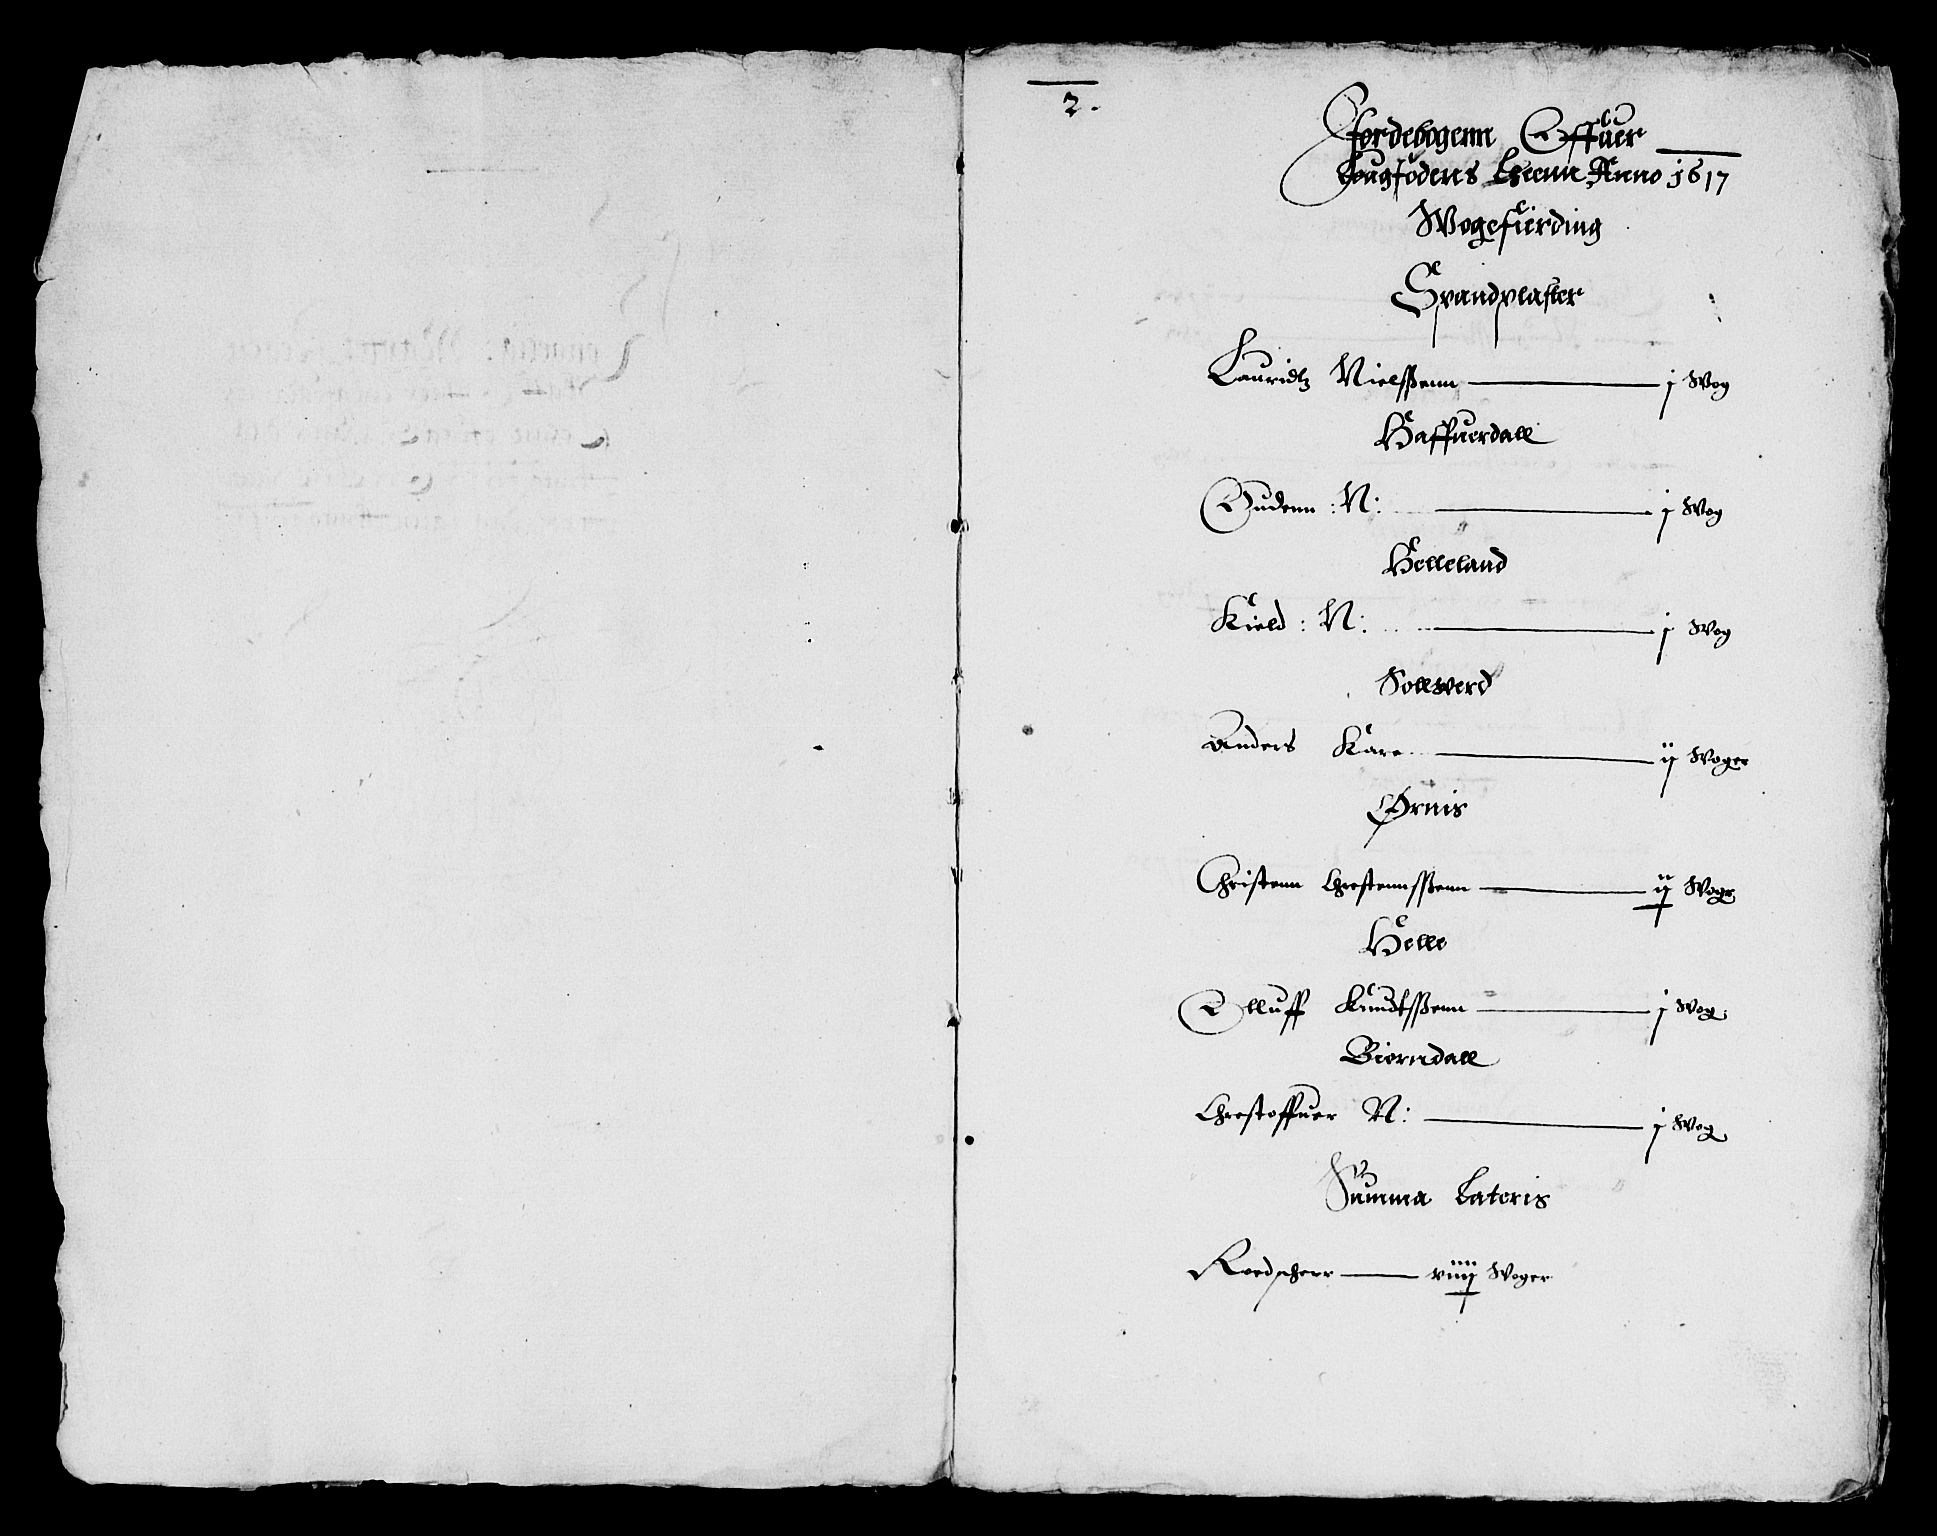 2.
Jordebogenn Offuer
Lougsodens Lheenn Anno 1617
Wogefierding
Spandplaster
Lauridtz Nielsßenn — j Wog
Haffuerdall
Gudenn : N: — j Wog
Helleland
Kield : N: — j Wog
Sollwerd
Anders Kare — ij Woger
Ørnis
Christenn Chrestennsßenn — ij Woger
Helle
Olluff Knudtsßenn — j Wog
Biørndall
Chrestoffuer N: — j Wog
Summa Lateris
Roedscherr — viiij Woger